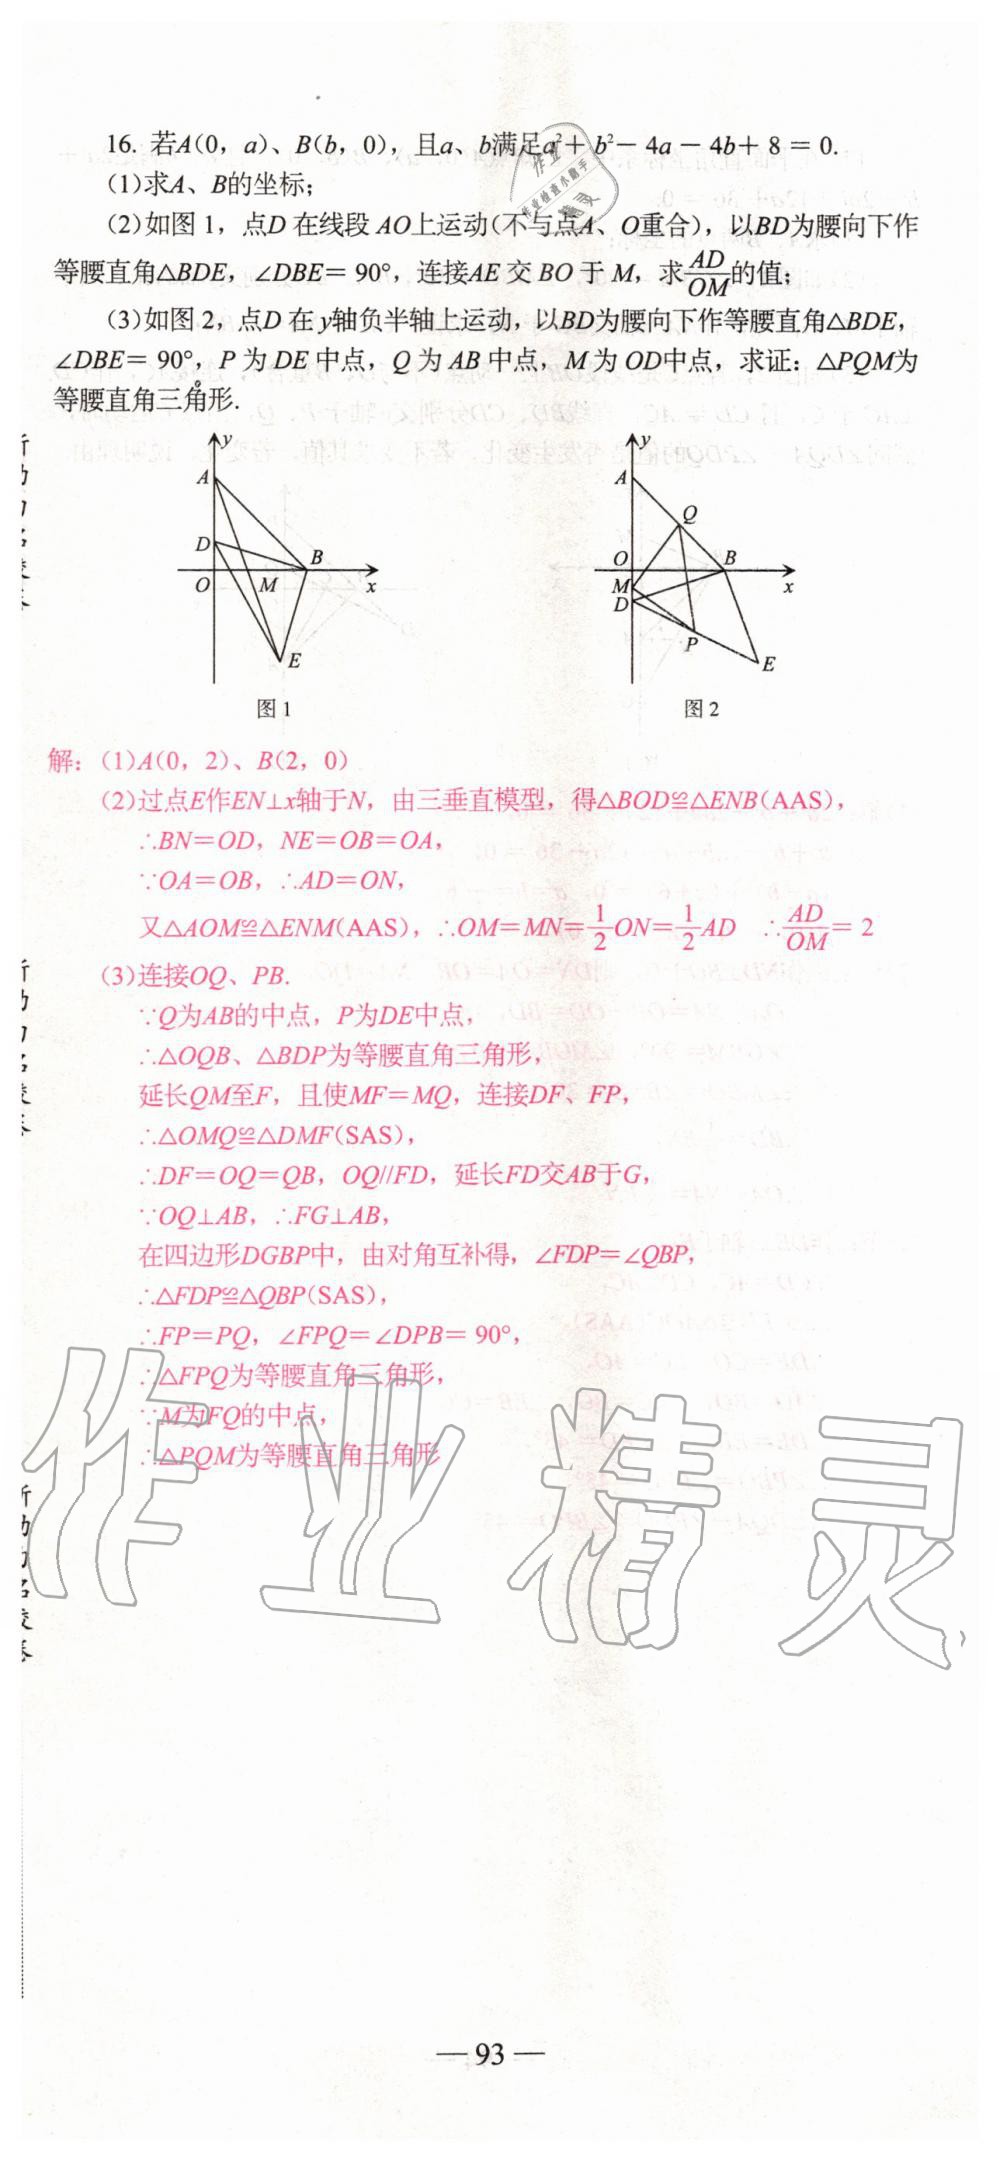 16. 若A(0，a)、B(b，0)，且a、b满足a²＋b²－4a－4b＋8＝0.
(1)求A、B的坐标；
(2)如图1，点D在线段AO上运动(不与点A、O重合)，以BD为腰向下作
等腰直角△BDE，∠DBE＝90°，连接AE交BO于M，求AD/OM的值；
(3)如图2，点D在y轴负半轴上运动，以BD为腰向下作等腰直角△BDE，
∠DBE＝90°，P为DE中点，Q为AB中点，M为OD中点，求证：△PQM为
等腰直角三角形.
y
A
D
B
O
M
x
E
图1
y
A
Q
O
B
M
x
D
P
E
图2
解：(1)A(0，2)、B(2，0)
(2)过点E作EN⊥x轴于N，由三垂直模型，得△BOD≌△ENB(AAS)，
∴BN＝OD，NE＝OB＝OA，
∵OA＝OB，∴AD＝ON，
又△AOM≌△ENM(AAS)，∴OM＝MN＝1/2ON＝1/2AD ∴AD/OM＝2
(3)连接OQ、PB.
∵Q为AB的中点，P为DE中点，
∴△OQB、△BDP为等腰直角三角形，
延长QM至F，且使MF＝MQ，连接DF、FP，
∴△OMQ≌△DMF(SAS)，
∴DF＝OQ＝QB，OQ//FD，延长FD交AB于G，
∵OQ⊥AB，∴FG⊥AB，
在四边形DGBP中，由对角互补得，∠FDP＝∠QBP，
∴△FDP≌△QBP(SAS)，
∴FP＝PQ，∠FPQ＝∠DPB＝90°，
∴△FPQ为等腰直角三角形，
∵M为FQ的中点，
∴△PQM为等腰直角三角形
作业精灵
— 93 —